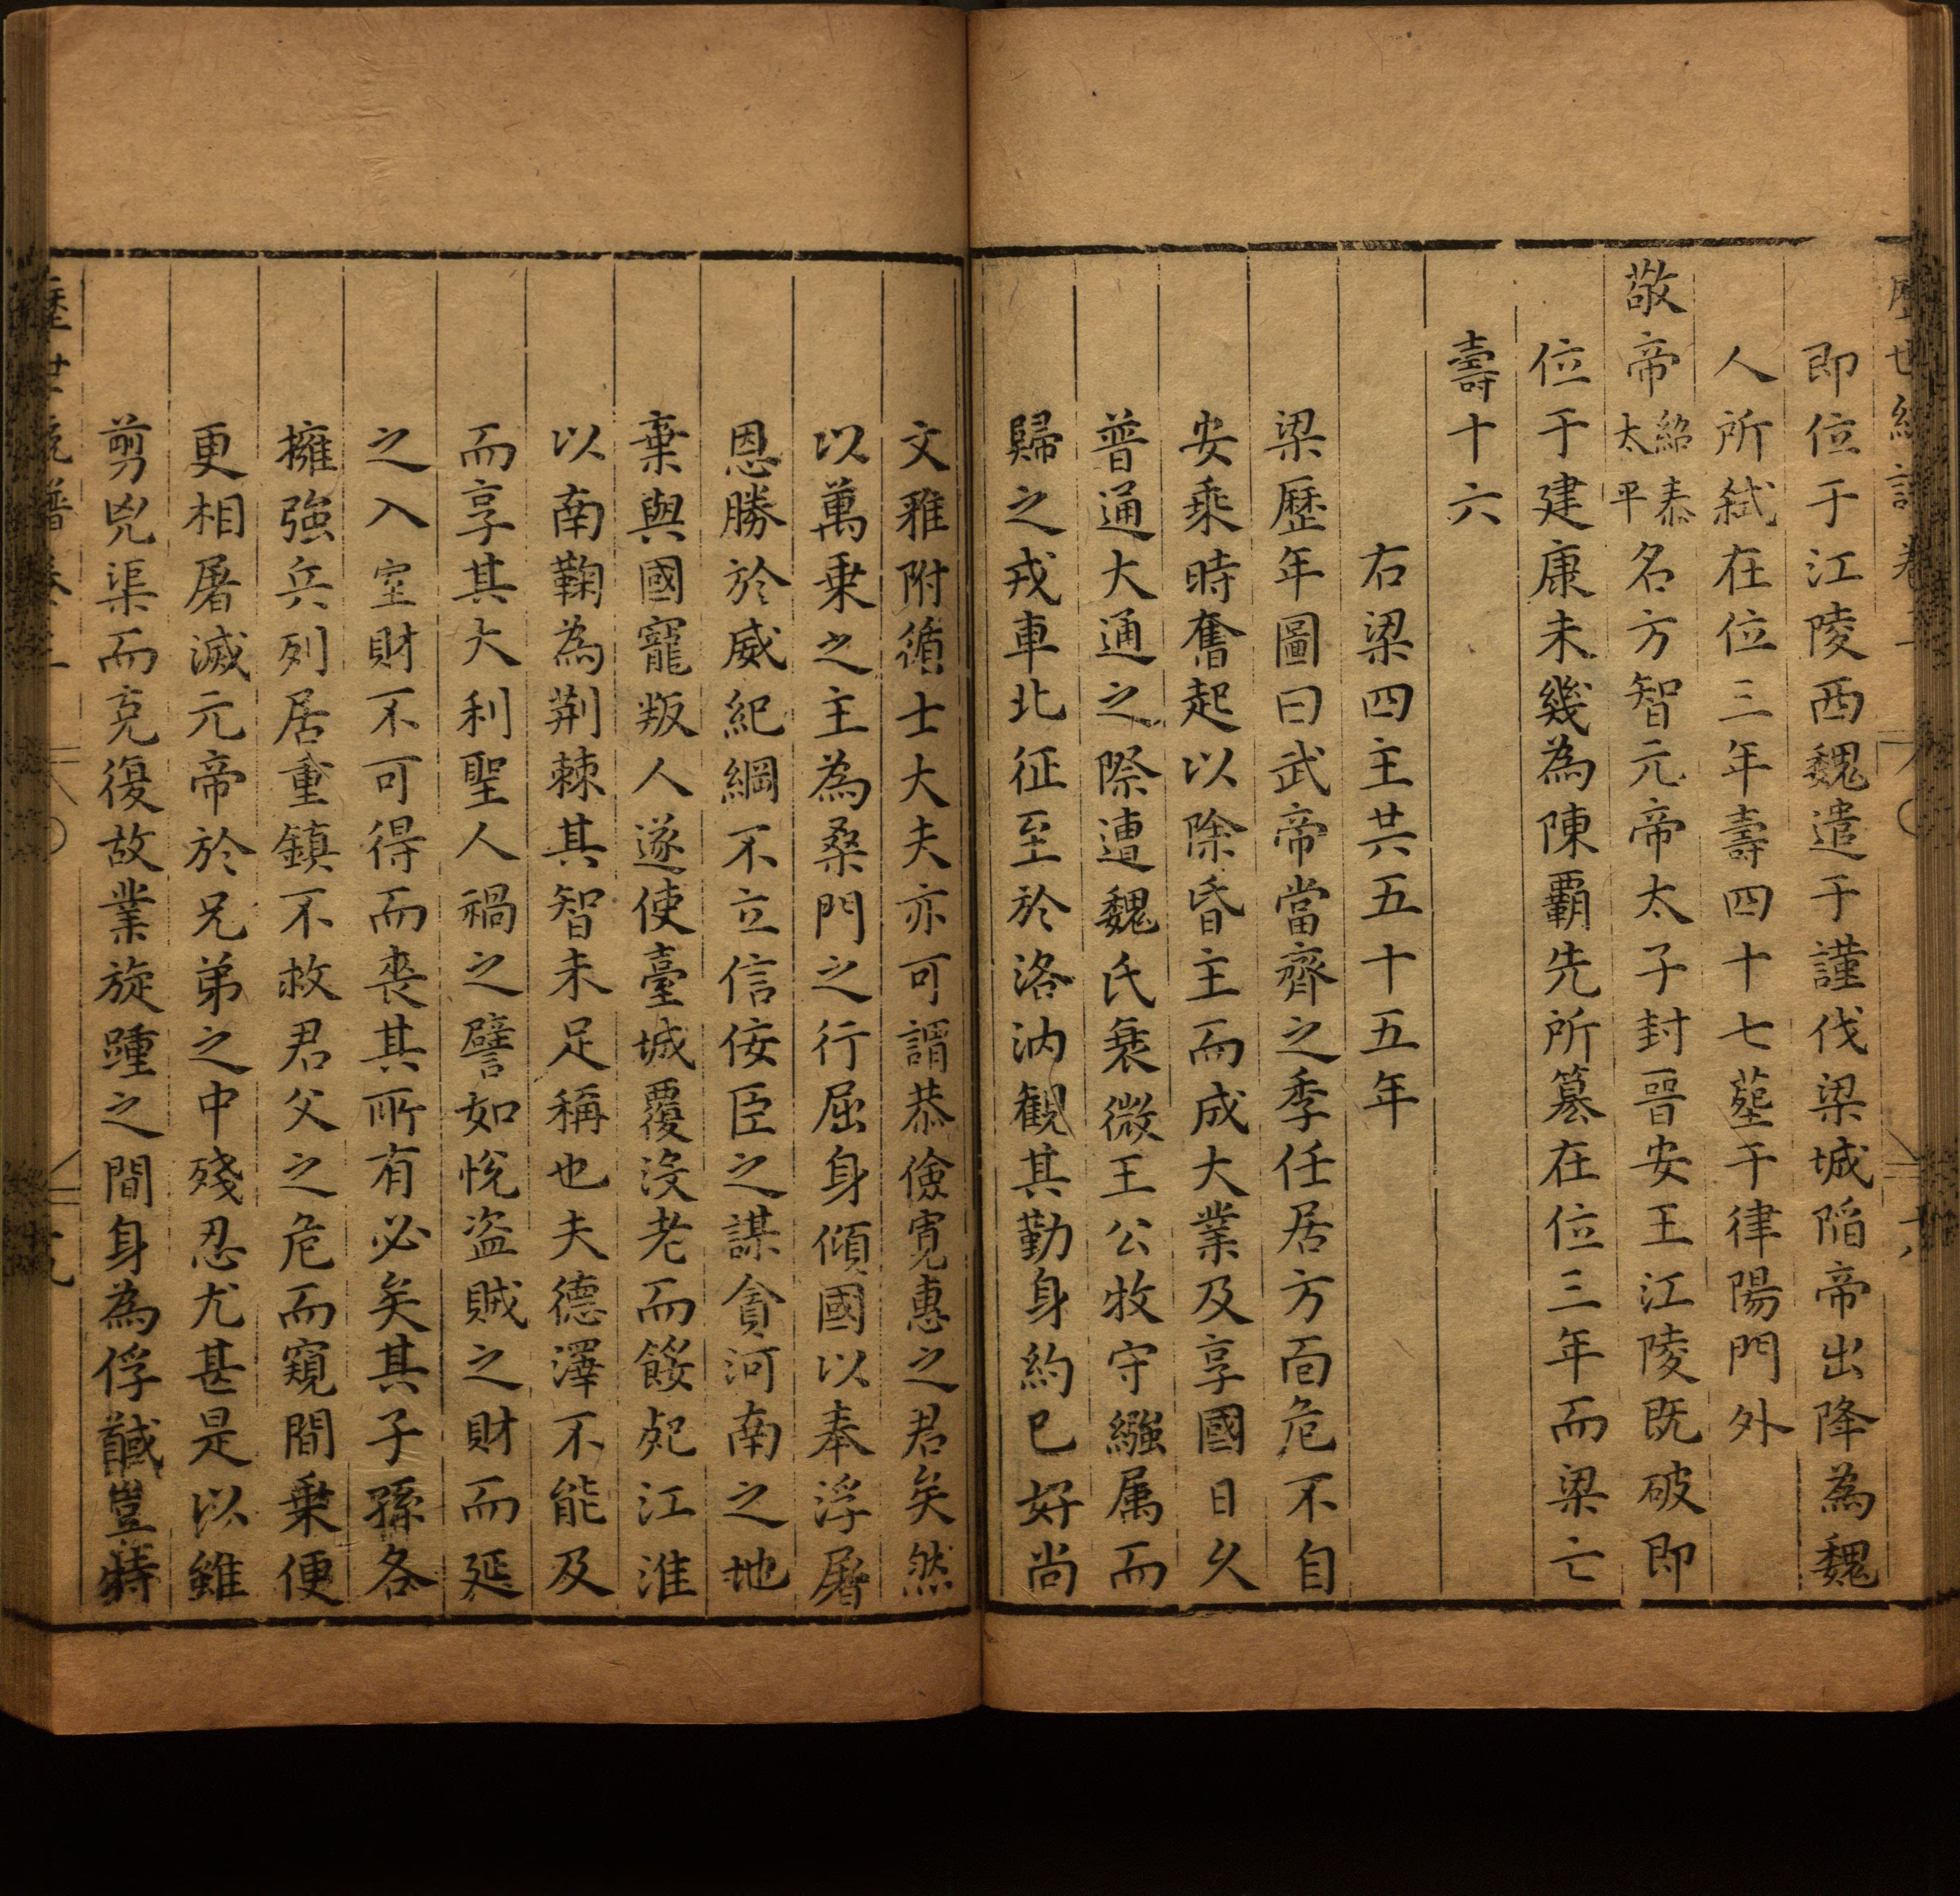 即位于江陵西魏遣于謹伐梁城陷帝出降為魏
人所弑在位三年壽四十七塟于律陽門外
敬帝紹泰太平名方智元帝太子封晉安王江陵既破即
位于建康未幾為陳覇先所篡在位三年而梁亡
壽十六
右梁四主共五十五年
梁歷年圖曰武帝當齊之季任居方面危不自
安乘時奮起以除昏主而成大業及享國日久
普通大通之際遭魏氏衰微王公牧守繈属而
歸之戎車北征至於洛汭観其勤身約已好尚
文雅附循士大夫亦可謂恭儉寛惠之君矣然
以萬乗之主為桑門之行屈身傾國以奉浮屠
恩勝於威紀綱不立信佞臣之謀貪河南之地
棄與國寵叛人遂使臺城覆没老而餒死江淮
以南鞠為荆棘其智未足稱也夫德澤不能及
而享其大利聖人禍之譬如悅盗賊之財而延
之入室財不可得而喪其所有必矣其子孫各
擁強兵列居重鎮不救君父之危而窺間乗便
更相屠滅元帝於兄弟之中殘忍尤甚是以雖
剪兇渠而克復故業旋踵之間身為俘馘豈特